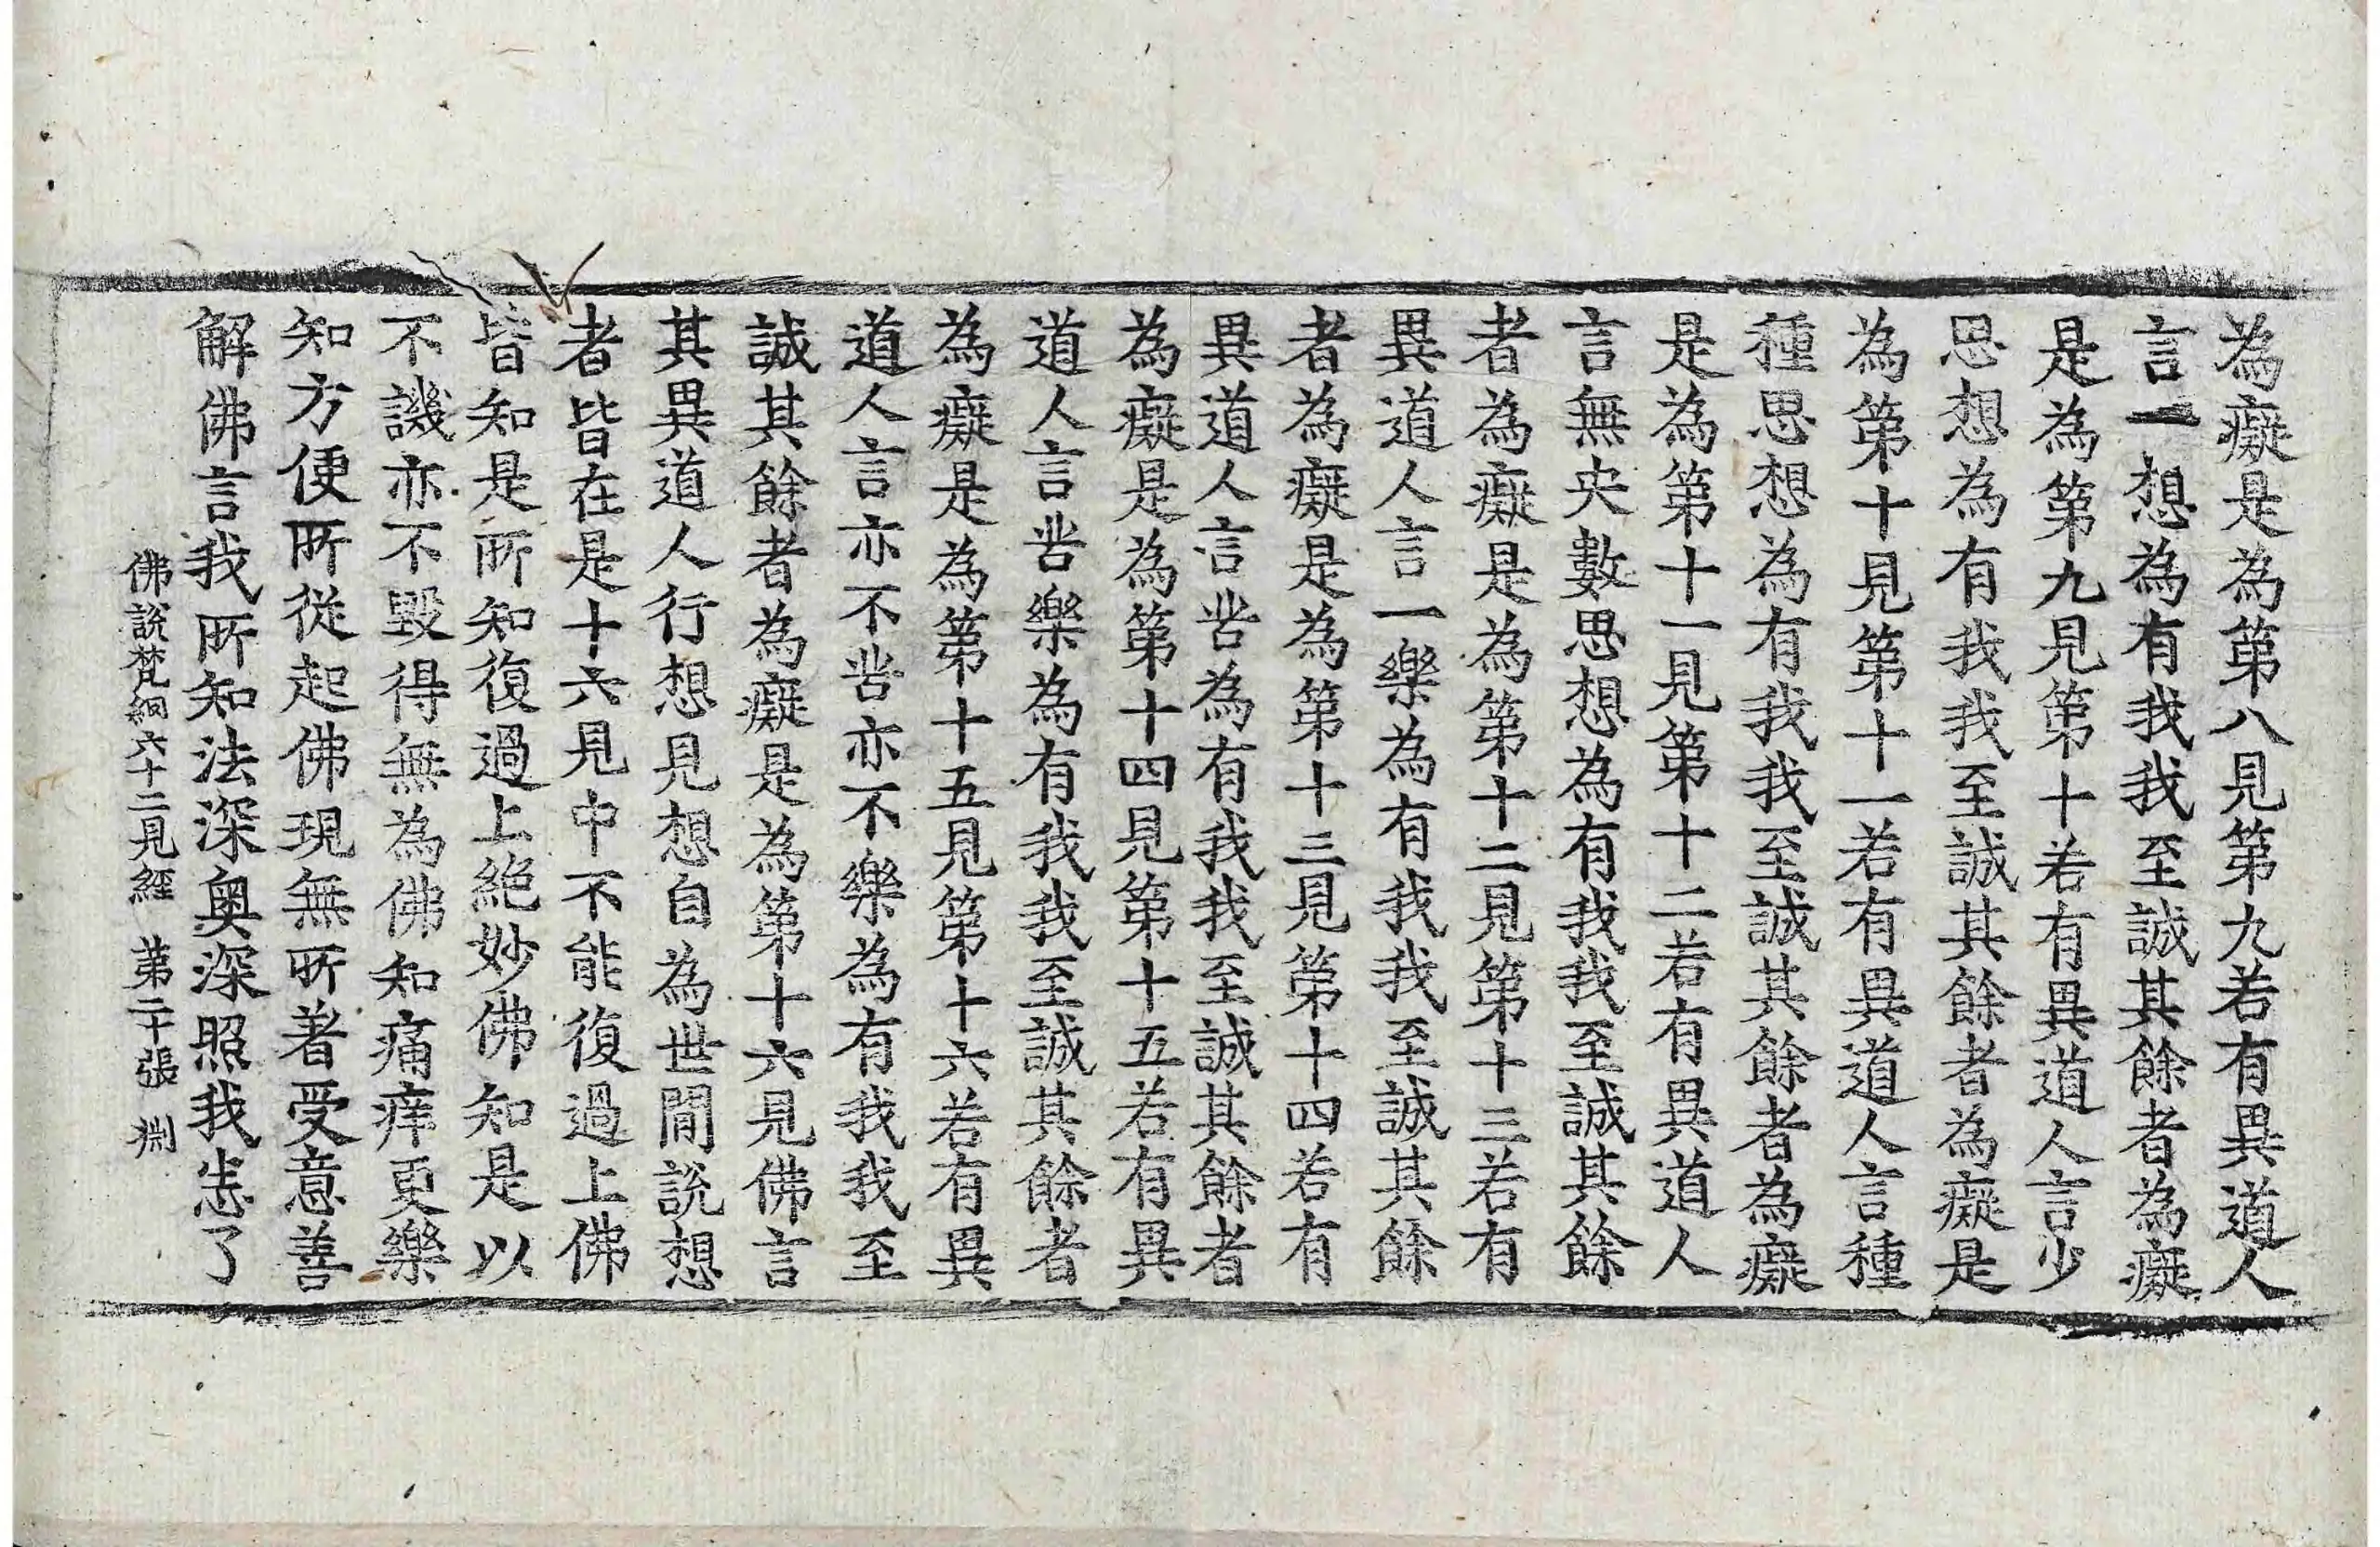 為癡是為第八見第九若有異道人
言一想為有我我至誠其餘者為癡
是為第九見第十若有異道人言少
思想為有我我至誠其餘者為癡是
為第十見第十一若有異道人言種
種思想為有我我至誠其餘者為癡
是為第十一見第十二若有異道人
言無央數思想為有我我至誠其餘
者為癡是為第十二見第十三若有
異道人言一樂為有我我至誠其餘
者為癡是為第十三見第十四若有
異道人言甞為有我我至誠其餘者
為癡是為第十四見第十五若有異
道人言甞樂為有我我至誠其餘者
為癡是為第十五見第十六若有異
道人言亦不甞亦不樂為有我我至
誠其餘者為癡是為第十六見佛言
其異道人行想見想自為世間說想
者皆在是十六見中不能復過上佛
皆知是所知復過上絕妙佛知是以
不譏亦不毀得無為佛知痛痒更樂
知方便所從起佛現無所著受意善
解佛言我所知法深奧深照我悉了
佛說梵網六十二見經 第二十張 淵